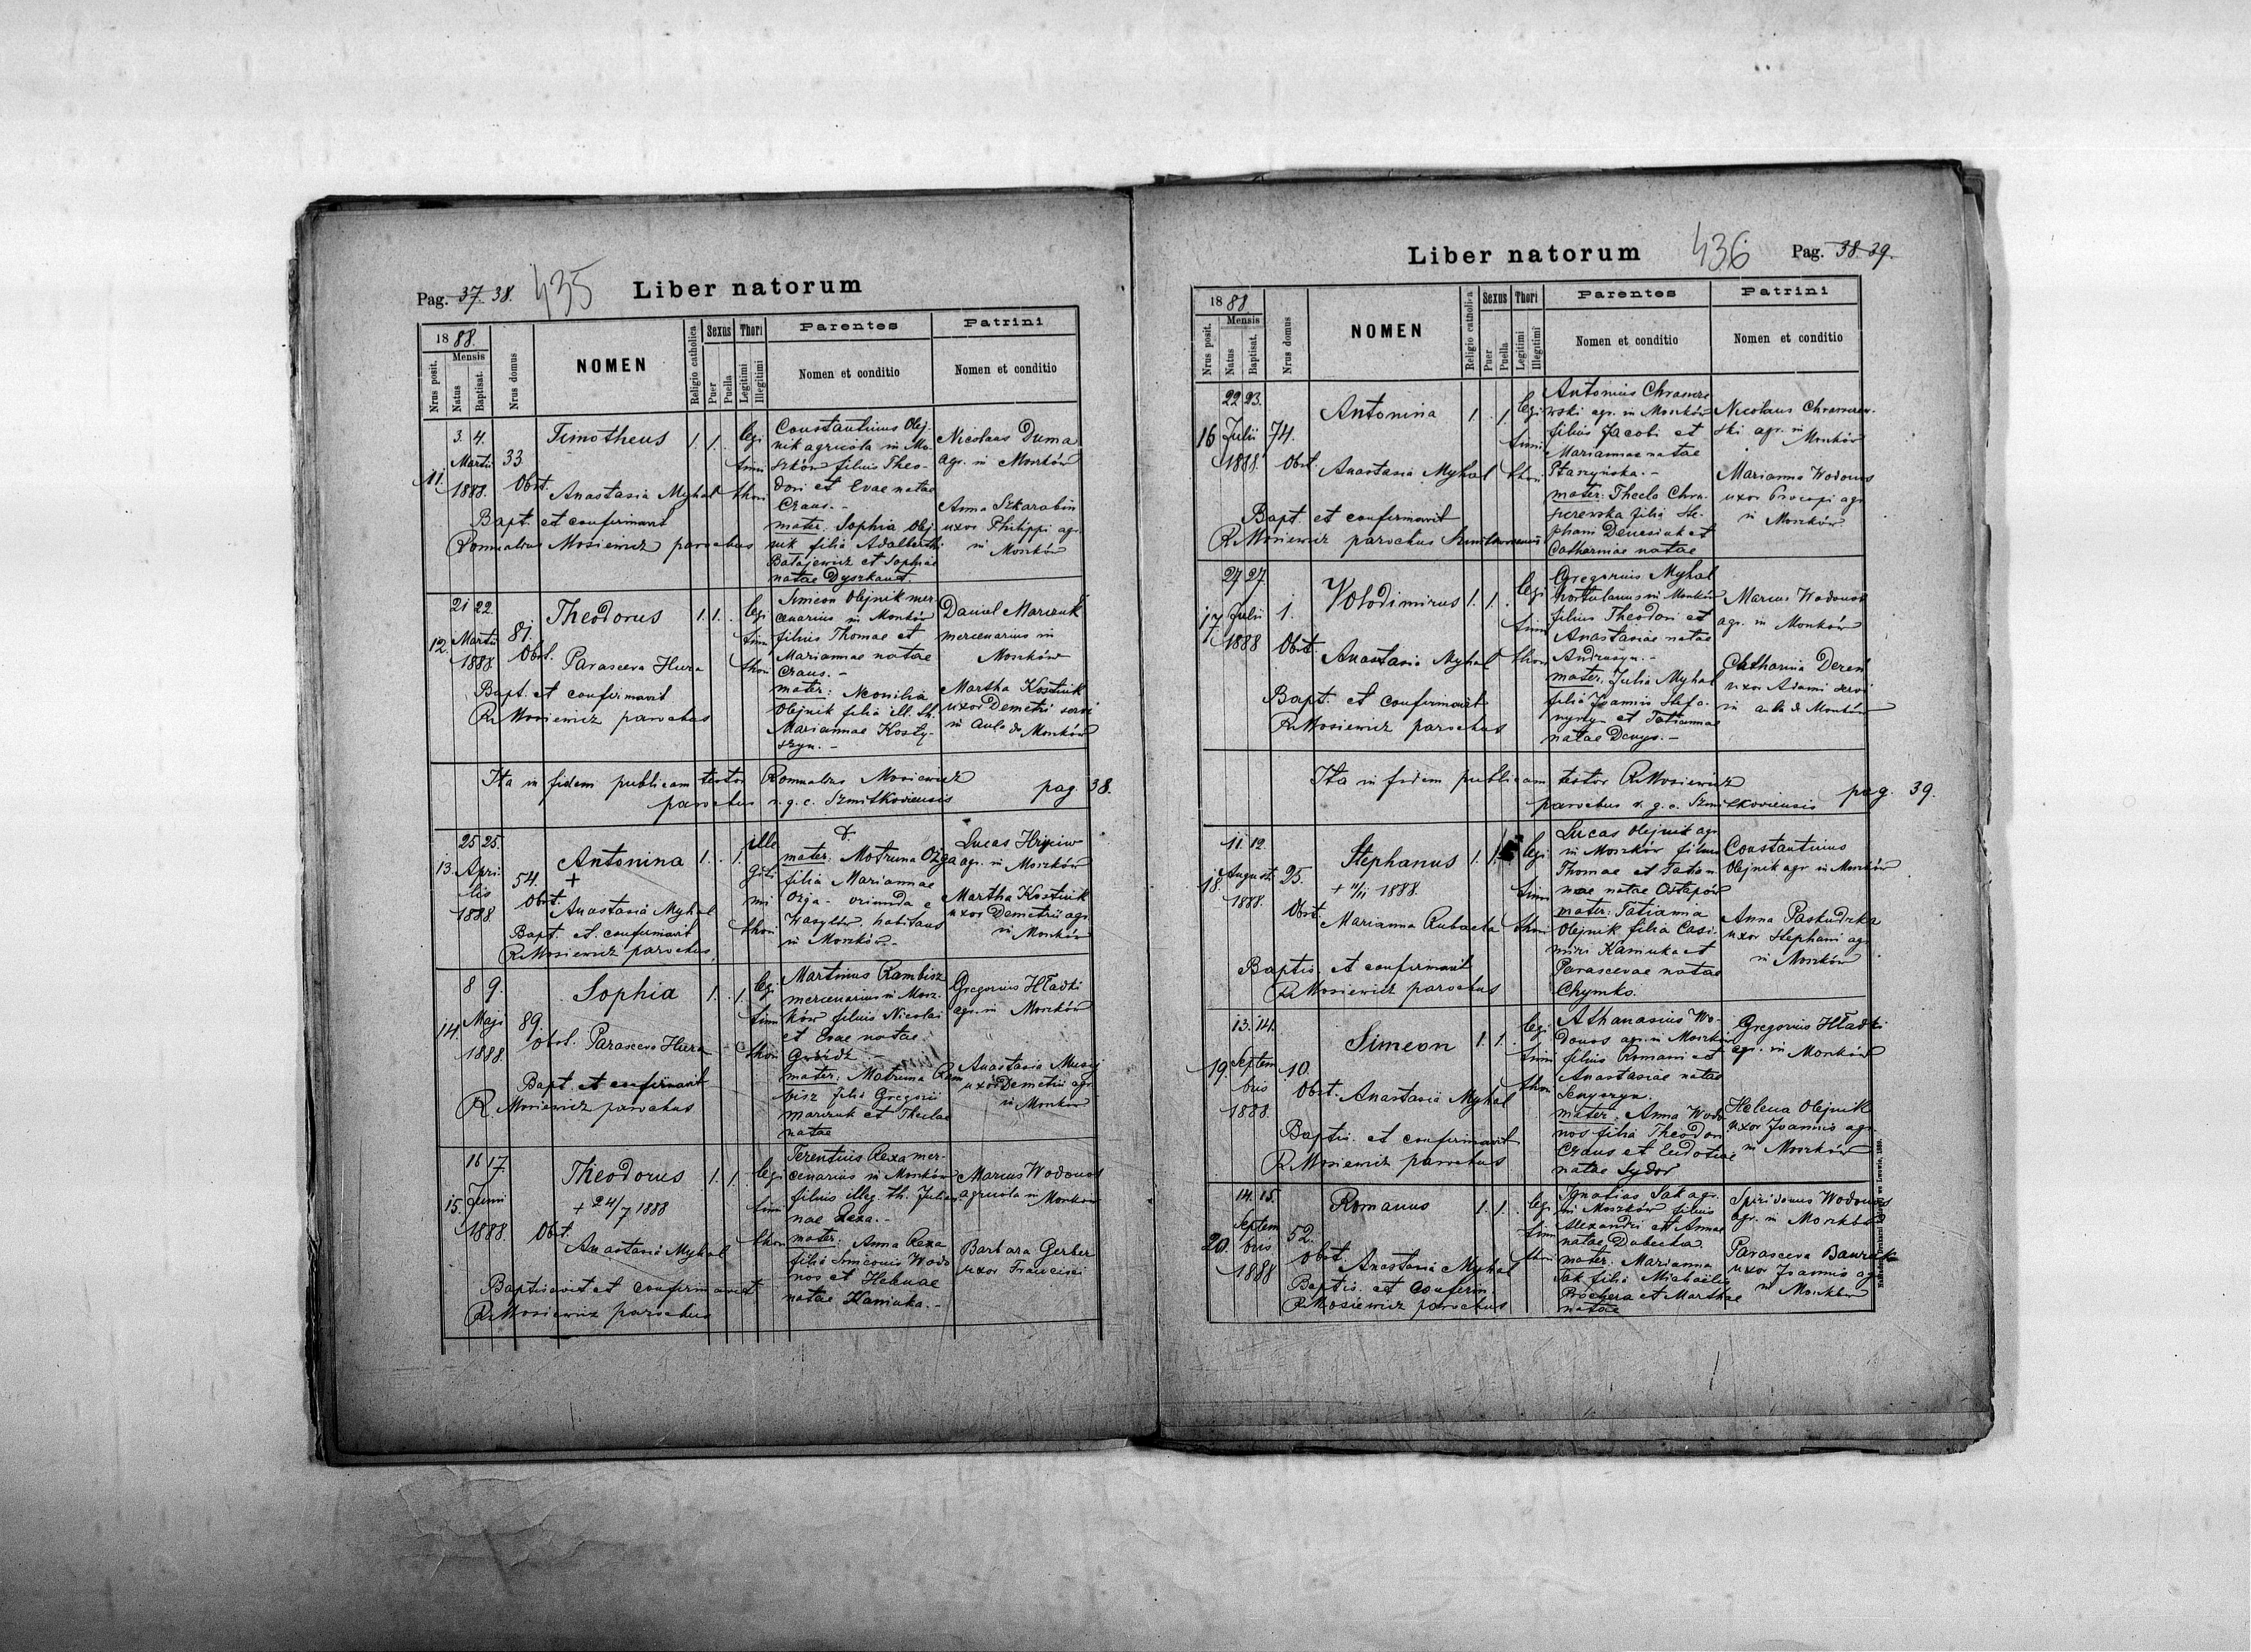 Pag. 37. 38. 435 Liber natorum
1888.
Mensis
Nrus posit.
Natus
Baptisat.
Nrus domus
NOMEN
Religio catholica
Sexus
Puer
Puella
Thori
Legitimi
Illegitimi
Parentes
Nomen et conditio
Patrini
Nomen et conditio
11.
3. 4.
Martii
1888.
33
Timotheus
1. 1.
legi
timi
thori
Obst. Anastasia Myhal
Bapt. et confirmavit
Romualdus Mosiewicz parochus
Constantinus Olej-
nik agricola in Mo-
szków filius Theo-
dori et Evae natae
Craus.-
mater: Sophia Olej-
nik filia Adalberti
Batajewicz et Sophiae
natae Dyszkant.
Nicolaus Duma
agr. in Moszków
Anna Szkarabin
uxor Philippi agr.
in Moszków
12.
21 22
Martii
1888.
81.
Theodorus
1. 1.
legi
timi
thori
Obst. Parasceva Hura
Bapt. et confirmavit
R. Mosiewicz parochus
Simeon Olejnik mer-
cenarius in Moszków
filius Thomae et
Mariannae natae
Craus.-
mater: Neonilia
Olejnik filia ill. th.
Mariannae Kosty-
szyn.-
Daniel Marczuk
mercenarius in
Moszków
Martha Kostiuk
uxor Demetri servi
in aula de Moszków
Ita in fidem publicam testor Romualdus Mosiewicz
parochus r. g. c. Szmitkoviensis pag. 38.
13.
25 25.
Apri
lis
1888
54.
Antonina
+
1. 1.
ille
giti
mi
thori
Obst. Anastasia Myhal
Bapt. et. confirmavit
R. Mosiewicz parochus
mater: Motruna Ożga
filia Mariannae
Ożga - oriunda e
Wasylów, habitans
in Moszków-
Lucas Hryciw
agr. in Moszków
Martha Kostiuk
uxor Demetrii agr.
in Moszków
14.
8 9.
Maji
1888.
89.
Sophia
1. 1.
legi
timi
thori
Obst. Parasceva Hura
Bapt. et confirmavit
R. Mosiewicz parochus
Martinus Rambisz
mercenarius in Mosz-
ków filius Nicolai
et Evae natae
mater: Motruna Ram
bisz filia Gregorii
Marczuk et Theclae
natae
Gregorius Hładki
agr. in Moszków
Anastasia Musij
uxor Demetrii agr.
in Moszków
15.
16 17.
Junii
1888.
Theodorus
+ 24/7 1888
1. 1.
legi
timi
thori
Obst.
Anastasia Myhal
Baptisavit et confirmavit
R. Mosiewicz parochus
Terentius Rexa mer-
cenarius in Moszków
filius illeg. th. Julian
nae Rexa.-
mater: Anna Rexa
filia Simeonis Wodo
nos et Helenae
natae Kaniuka.-
Marcus Wodonos
agricola in Moszków
Barbara Gerber
uxor Francisci
Liber natorum 436 Pag. 38. 39.
1888
Mensis
Nrus posit.
Natus
Baptisat.
Nrus domus
NOMEN
Religio catholica
Sexus
Puer
Puella
Thori
Legitimi
Illegitimi
Parentes
Nomen et conditio
Patrini
Nomen et conditio
16
22 23.
Julii
1888.
74.
Antonina
1. 1.
legi
timi
thori
Obst. Anastasia Myhal
Bapt. et confirmavit
R. Mosiewicz parochus
Antonius
wski agr. in Moszków
filius Jacobi et
Mariannae natae
Ptaszyńska.-
mater: Thecla
filia Ste-
phani Denesiuk et
Catharinae natae
Nicolaus
ski agr. in
Moszków
Marianna Wodonos
uxor Procopi agr.
in Moszków
17
27 27.
Julii
1888
1.
Volodimirus
1. 1.
legi
timi
thori
Obst. Anastasia Myhal
Bapt. et confirmavit
R. Mosiewicz parochus
Gregorius Myhal
hortulanus in Moszków
filius Theodori et
Anastasiae natae
Andrusyn.-
mater: Julia Myhal
filia Joannis Stefa-
nyszyn et Tatiannae
natae Denys.-
Marcus Wodonos
agr. in Moszków
Catharina Dereń
uxor Adami servi
in aula de Moszków
Ita in fidem publicam testor R. Mosiewicz
parochus r. g. c. Szmitkoviensis pag. 39.
18.
11. 12.
August.
1888.
25.
Stephanus
+ 11/11 1888.
1. 1.
legi
timi
thori
Obst.
Marianna Rubacha
Baptis. et confirmavit
R. Mosiewicz parochus
Lucas Olejnik agr.
in Moszków filius
Thomae et Tatian
nae natae Ostapów
mater: Tatianna
Olejnik filia Casi-
miri Kaniuka et
Parascevae natae
Chymko.
Constantinus
Olejnik agr. in Moszków
Anna Paskudzka
uxor Stephani agr.
in Moszków
19.
13. 14.
Septem
bris
1888.
10.
Simeon
1. 1.
legi
timi
thori
Obst. Anastasia Myhal
Baptis. et confirmavit
R. Mosiewicz parochus
Athanasius Wo-
donos agr. in Moszków
filius Romani et
Anastasiae natae
Senyszyn.
mater: Anna Wodo
nos filia Theodori
Craus et Eudociae
natae Sydor
Gregorius Hładki
agr. in Moszków
Helena Olejnik
uxor Joannis agr.
in Moszków
20.
14. 15.
Septem
bris
1888
52.
Romanus
1. 1.
legi
timi
thori
Obst. Anastasia Myhal
Baptis. et confirm.
R. Mosiewicz parochus
Ignatius Sak agr.
in Moszków filius
Alexandri et Annae
natae Dubecka.
mater: Marianna
Sak filia Michaelis
Prochera et Marthae
natae
Spiridonus Wodonos
agr. in Moszków
Parasceva
uxor Joannis agr.
in Moszków